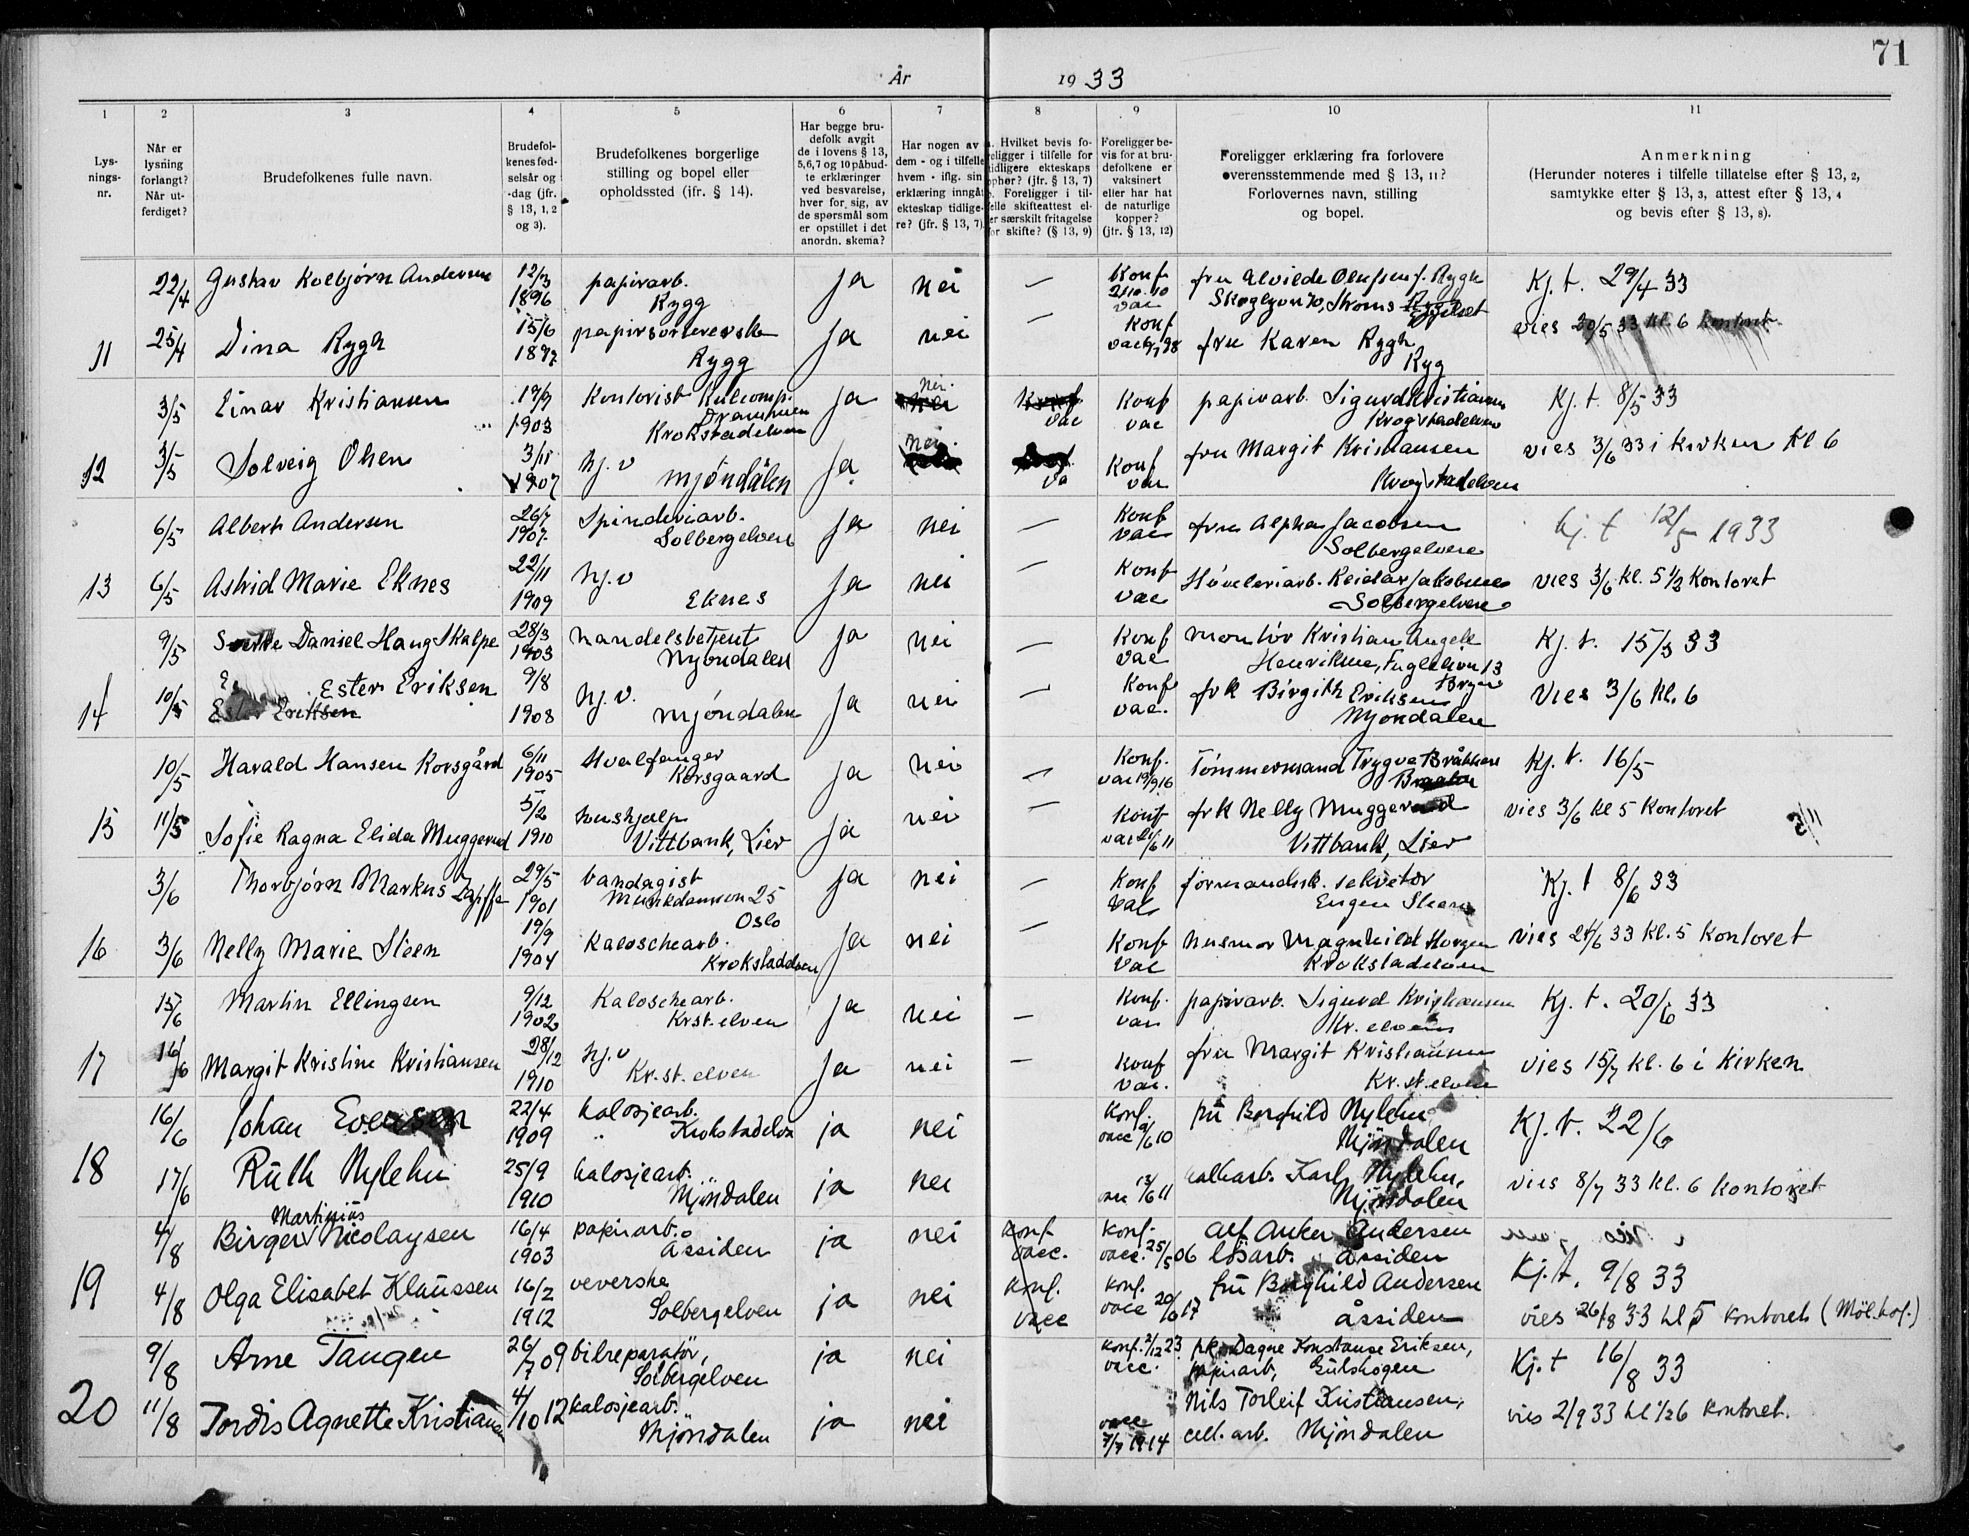 71
År 1933
1 2 3 4 5 6 7 8 9 10 11
Lys-
nings-
nr.
Når er
lysning
forlangt?
Når ut-
ferdiget?
Brudefolkenes fulle navn.
Brudefol-
kenes fød-
selsår og
-dag (jfr.
§ 13, 1, 2
og 3).
Brudefolkenes borgerlige
stilling og bopel eller
opholdssted (ifr. § 14).
Har begge bru-
defolk avgit
de i lovens § 13,
5,6,7 og 10 påbud-
te erklæringer
ved besvarelse,
hver for sig, av
de spørsmål som
er opstillet i det
anordn. skema?
Har nogen av
dem - og i tilfelle
hvem - iflg. sin
erklæring inngåt
ekteskap tidlige-
re? (jfr. § 13, 7)
Hvilket bevis fo-
religger i tilfelle for
tidligere ekteskaps
ophør? (jfr. § 13, 7)
Foreligger i til-
felle skifteattest el-
ler særskilt fritagelse
for skifte? (§ 13, 9)
Foreligger be-
vis for at bru-
defolkene er
vaksinert
eller har hat
de naturlige
kopper?
(jfr. § 13, 12)
Foreligger erklæring fra forlovere
overensstemmende med § 13, 11?
Forlovernes navn, stilling
og bopel.
Anmerkning
(Herunder noteres i tilfelle tillatelse efter § 13, 2,
samtykke efter § 13, 3, attest efter § 13, 4
og bevis efter § 13, 8).
22/4 Gustav Kolbjørn Andersen 12/3 1896 papirarb. Rygg ja nei — Konf vac fru Alvilde Olufsen f. Rygh Kj. t. 29/4 33
11 25/4 Dina Rygh 15/6 1897 papirsortererske Rygg ja nei — Konf vac fru Karen Rygh Ryg vies 20/5 33 kl. 6 kontoret
3/5 Einar Kristiansen 19/9 1903 Kontorist Kulcomp. Drammen Krokstadelven ja nei vac Konf vac papirarb. Sigurd Kristiansen Krogstadelven Kj. t. 8/5 33
12 3/5 Solveig Olsen 3/11 1907 hj. v Mjøndalen ja nei Konf vac fru Margit Kristiansen Krogstadelven vies 3/6 33 i kirken kl 6
6/5 Albert Andersen 26/7 1907 Spinderiarb. Solbergelven ja nei — Konf vac fru Alpha Jacobsen Solbergelven kj. t 12/5 1933
13 6/5 Astrid Marie Eknes 22/11 1909 hj. v Eknes ja nei — Konf vac Høvleriarb. Reidar Jakobsen Solbergelven vies 3/6 kl. 5 1/2 Kontoret
9/5 Daniel Haug Skalpe 28/3 1903 handelsbetjent Mjøndalen ja nei — Konf vac montør Kristian Angell Henriksen, Kj. t. 15/5 33
14 10/5 Ester Eriksen 9/8 1908 hj. v. Mjøndalen ja nei — Konf vac. frk Birgith Eriksen Mjøndalen Vies 3/6 kl. 6
10/5 Harald Hansen Korsgård 6/11 1905 Hvalfanger Korsgaard ja nei — Konf. vac 19/9 16 Tømmermand Trygve Bråthen Kj. t. 16/5
15 11/5 Sofie Ragna Elida Muggerud 5/2 1910 hushjelp Vittbank, Lier ja nei — Konf vac 21/6 11 frk Nelly Muggerud Vittbank, Lier vies 3/6 kl 5 Kontoret
3/6 Thorbjørn Markus Zapffe 29/5 1901 bandagist Munkedamsvn 25 Oslo ja nei — Konf vac formandsk. sekretær Eugen Steen Kj. t 8/6 33
16 3/6 Nelly Marie Steen 19/9 1904 Kaloschearb. Krokstadelven ja nei — Konf vac husmor Magnhild Horgen Krokstadelven vies 24/6 33 kl. 5 Kontoret
15/6 Martin Ellingsen 9/12 1902 Kaloschearb. Krst. elven ja nei — Konf. vac papirarb. Sigurd Kristiansen Kr. elven Kj. t. 20/6 33
17 16/6 Margit Kristine Kristiansen 28/12 1910 hj. v Kr. st. elven ja nei — Konf vac. fru Margit Kristiansen Kr. st. elven vies 15/7 kl. 6 i Kirken
16/6 Johan Evensen 22/4 1909 kalosjearb. Krokstadelva ja nei konf. vacc 9/6 10 fru Borghild Nylehn Mjøndalen Kj. t. 22/6
18 17/6 Ruth Nylehn 25/9 1910 kalosjearb. Mjøndalen ja nei vac 13/6 11 kalkarb. Karl Nylehn, Mjøndalen vies 8/7 33 kl. 6 kontoret
4/8 Birger Martinius Nicolaysen 16/4 1903 papirarb. Åssiden ja nei konf. vacc. konf. vacc. 25/5 06 Alf Anker Andersen løsarb. Åssiden
19 4/8 Olga Elisabet Klaussen 16/2 1912 veverske Solbergelven ja nei konf. vacc konf. vacc 20/6 17 fru Borghild Andersen Åssiden Kj. t. 9/8 33
vies 26/8 33 kl 5 kontoret (Møl.hof.)
9/8 Arne Tangen 26/7 09 bilreparatør, Solbergelven ja nei konf. 2/12 23 vacc. frk. Dagne Konstanse Eriksen, papirarb, Gulskogen Kj. t 16/8 33
20 11/8 Tordis Agnette Kristiansen 4/10 12 kalosjearb. Mjøndalen ja nei vacc 7/7 1914 Nils Torleif Kristiansen, cell. arb. Mjøndalen vies 2/9 33 kl 1/2 6 kontoret.